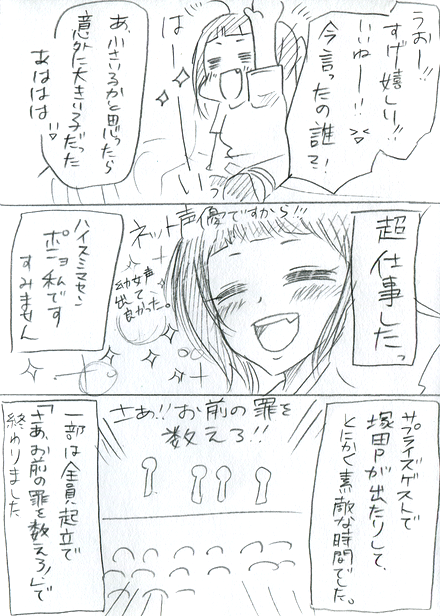 うおー!!
すげ嬉しい!!
いいねー!!
今言ったの誰?!
はーい
あ、小さい子かと思ったら
意外に大きい子だった
あははは
超仕事したっ
ネット声優ですから!!
幼女声
出て
良かった。
ハイスミマセン
ポニョ私です
すみません
サプライズゲストで
塚田Pが出たりして、
とにかく素敵な時間でした。
さあ!!お前の罪を
数えろ!!
一部は全員起立で
「さあ、お前の罪を数えろ!」で
終わりました